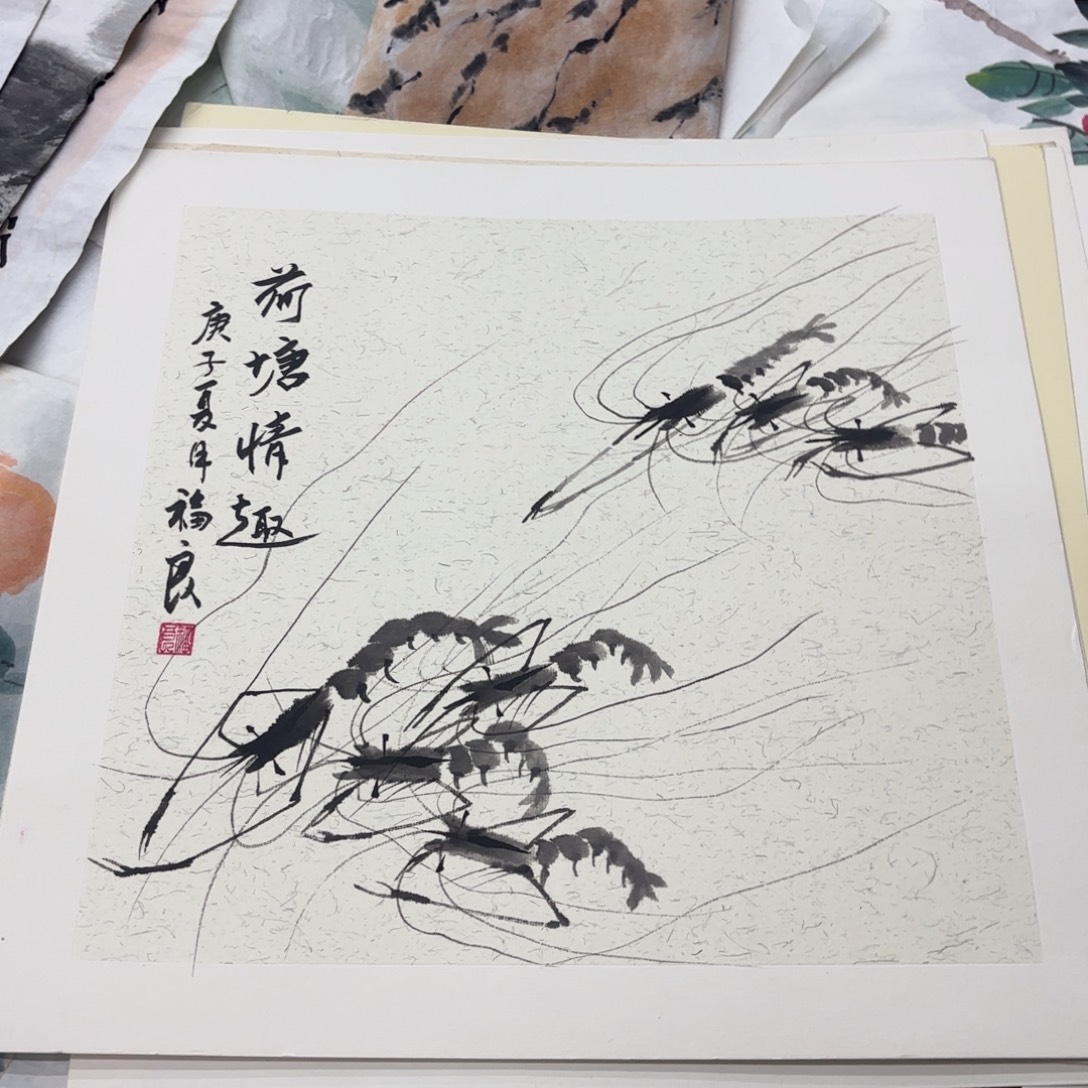 荷塘情趣
庚子夏月福良